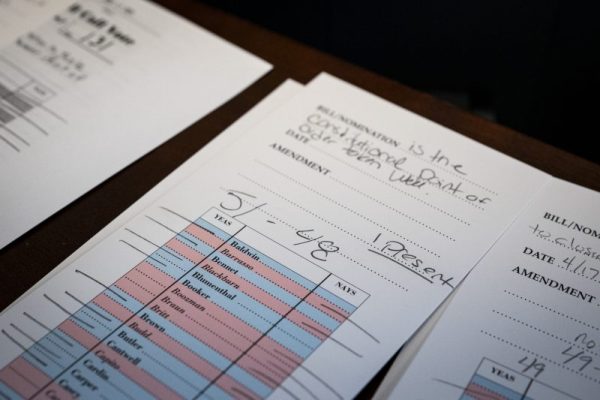 ll Call Vote
131
NAYS
BILL/NOMINATION is the
constitutional point of
order term well
DATE
AMENDMENT
51 - 48
1 Present
YEAS
NAYS
Baldwin
Barrasso
Bennet
Blackburn
Blumenthal
Booker
Boozman
Braun
Britt
Brown
Budd
Butler
Cantwell
Capito
Cardin
Carper
BILL/NOMINATION
to close
DATE 4/17
AMENDMENT
no
49-
49
YEAS